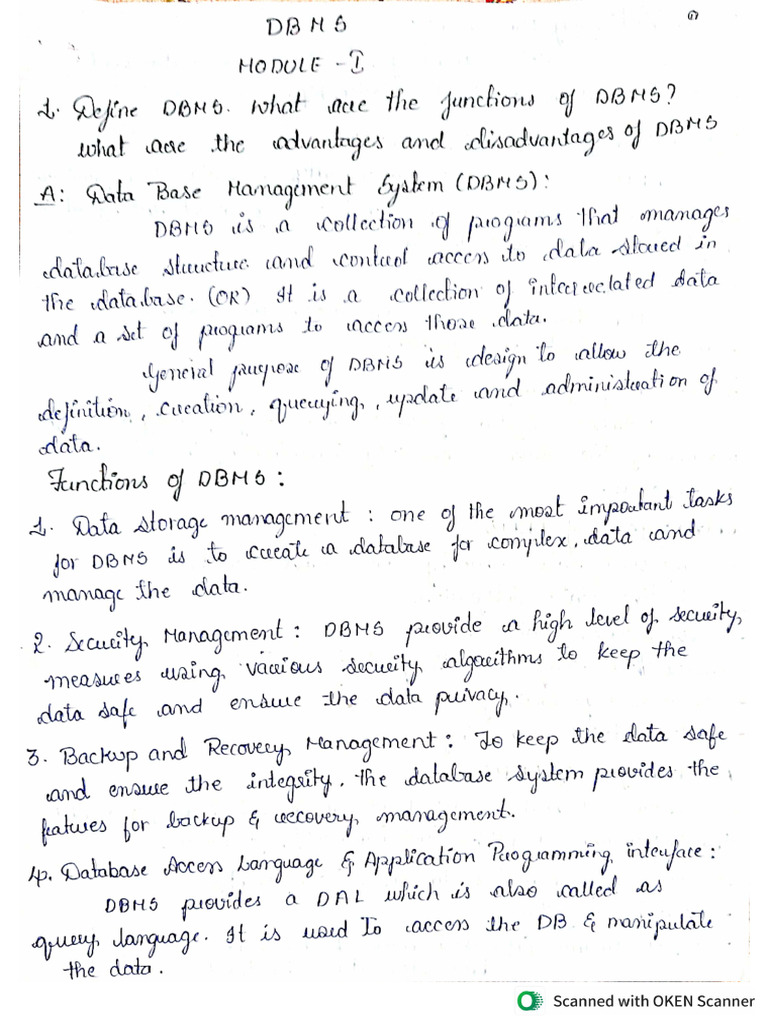 DBMS
MODULE - I
1. Define DBMS. What are the functions of DBMS?
what are the advantages and disadvantages of DBMS
A: Data Base Management System (DBMS):
DBMS is a collection of programs that manages
database structure and control access to data stored in
the database. (OR) It is a collection of interrelated data
and a set of programs to access those data.
General purpose of DBMS is design to allow the
definition, creation, querying, update and administration of
data.
Functions of DBMS:
1. Data Storage management: one of the most important tasks
for DBMS is to create a database for complex data and
manage the data.
2. Security Management: DBMS provide a high level of security,
measures using various security algorithms to keep the
data safe and ensure the data privacy.
3. Backup and Recovery Management: To keep the data safe
and ensure the integrity, the database system provides the
features for backup & recovery management.
4. Database Access Language & Application Programming interface:
DBMS provides a DAL which is also called as
query language. It is used To access the DB & manipulate
the data.
Scanned with OKEN Scanner